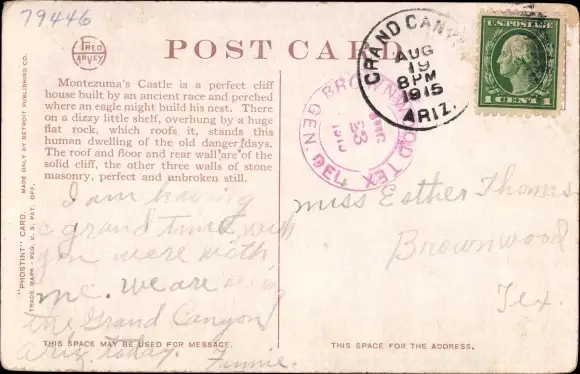 79446
FRED HARVEY
POST CARD
GRAND CANYON
AUG
19
8 PM
1915
ARIZ.
U.S. POSTAGE
1 CENT 1
BROWNWOOD TEX
AUG
23
1915
GEN. DEL.
Montezuma's Castle is a perfect cliff
house built by an ancient race and perched
where an eagle might build his nest. There
on a dizzy little shelf, overhung by a huge
flat rock, which roofs it, stands this
human dwelling of the old danger days.
The roof and floor and rear wall are of the
solid cliff, the other three walls of stone
masonry, perfect and unbroken still.
"PHOSTINT" CARD. MADE ONLY BY DETROIT PUBLISHING CO.
TRADE MARK - REG. U. S. PAT. OFF.
I am having
a grand time wish
you were with
me. we are
the Grand Canyon
Ariz. today.
Fannie.
THIS SPACE MAY BE USED FOR MESSAGE.
miss Esther Thomas
Brownwood
Tex.
THIS SPACE FOR THE ADDRESS.